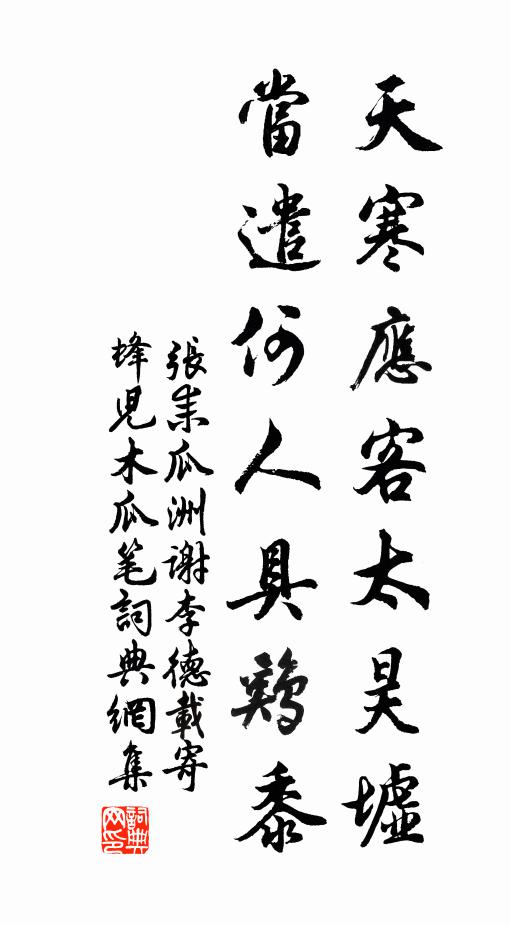 天寒應客太昊墟
當遣何人具鷄黍
張耒瓜洲謝李德載寄
蜂児木瓜笔詞典網集
詞典
网印